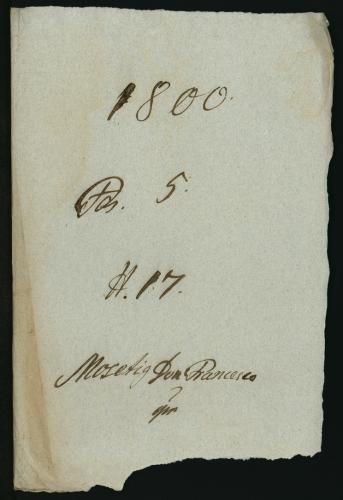 1800.
Fas. 5.
H. 17.
Mosetig Don Francesco